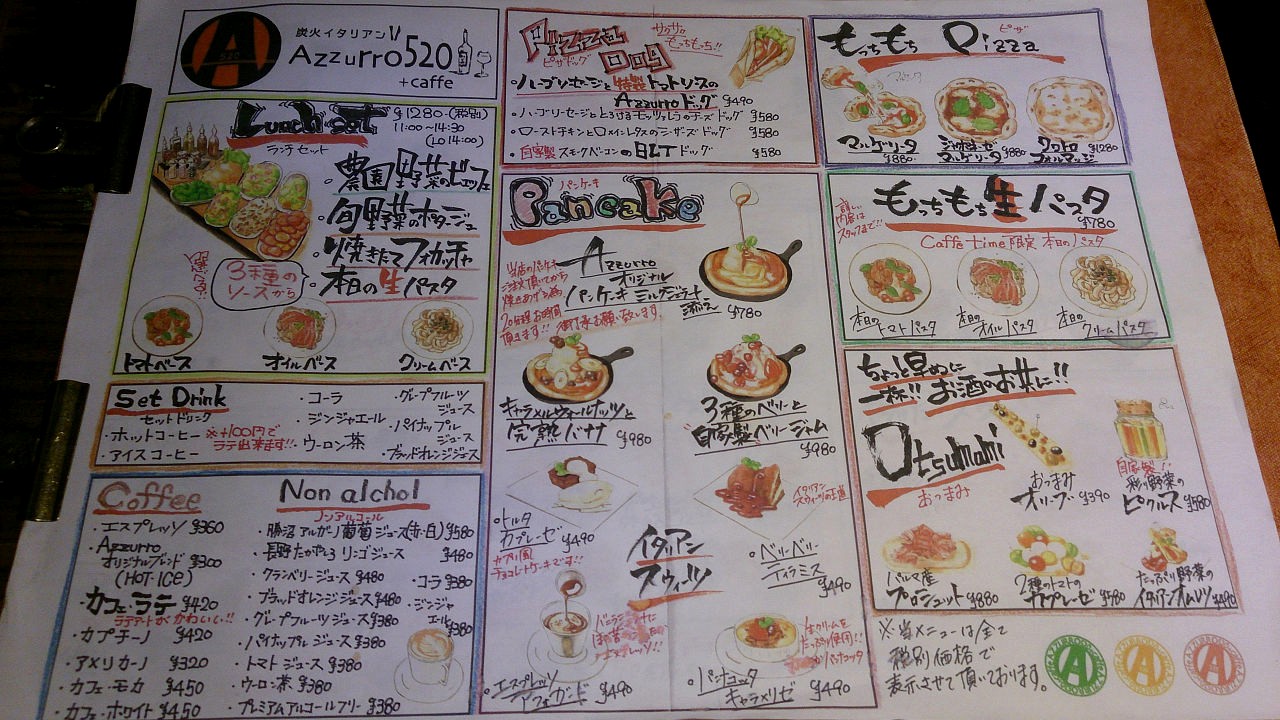 炭火イタリアン
Azzurro520
+caffe
A
520
Lunch set
ランチセット
¥1280-(税別)
11:00~14:30
(LO 14:00)
・農園野菜のビュッフェ
・旬野菜のポタージュ
・焼きたてフォカッチャ
・本日の生パスタ
選べる!!
3種の
ソースから
トマトベース
オイルベース
クリームベース
Set Drink
セットドリンク
・ホットコーヒー
・アイスコーヒー
※+100円で
ラテ出来ます!!
・コーラ
・ジンジャエール
・ウーロン茶
・グレープフルーツ
ジュース
・パイナップル
ジュース
・ブラッドオレンジジュース
Coffee
・エスプレッソ ¥360
・Azzurro
オリジナルブレンド ¥300
(HOT・ICE)
・カフェ・ラテ ¥420
ラテアートがかわいい!!
・カプチーノ ¥420
・アメリカーノ ¥320
・カフェ・モカ ¥450
・カフェ・ホワイト ¥450
Non alchol
ノンアルコール
・勝沼 アルガーノ葡萄ジュース(赤・白) ¥580
・長野 たかやしろ リンゴジュース ¥480
・クランベリージュース ¥480
・ブラッドオレンジジュース ¥480
・グレープフルーツジュース ¥380
・パイナップルジュース ¥380
・トマトジュース ¥380
・ウーロン茶 ¥380
・プレミアムアルコールフリー ¥380
・コーラ ¥380
・ジンジャ
エール ¥380
Pizza Dog
ピザドッグ
サクサク
もっちもち!!
・ハーブソーセージと特製トマトソースの
Azzurroドッグ ¥490
・ハーブソーセージととろけるモッツァレラのチーズドッグ ¥580
・ローストチキンとロメインレタスのシーザーズドッグ ¥580
・自家製スモークベーコンのBLTドッグ ¥580
パンケーキ
Pancake
当店のパンケーキは
ご注文頂いてから
焼きあげる為
20分程お時間
頂きます!!
御了承お願い致します。
Azzurro
オリジナル
パンケーキ ミルクジェラート
添え ¥780
キャラメルウォールナッツと
完熟バナナ ¥980
3種のベリーと
自家製ベリージャム ¥980
・トルタ
カプレーゼ ¥490
カプリ風
チョコレートケーキです!!
イタリアン
スウィーツ
イタリアン
スウィーツの王道
・ベリーベリー
ティラミス ¥490
・エスプレッソ
アフォガード ¥490
・パンナコッタ
キャラメリゼ ¥490
もっちもち Pizza
ピザ
マルゲリータ
¥880
ジャポネーゼ
マルゲリータ ¥880
クワトロ
フォルマッジ ¥1280
もっちもち生パスタ
¥780
詳しい
内容は
スタッフまで!!
Caffe time限定 本日のパスタ
本日の
トマトパスタ
本日の
オイルパスタ
本日の
クリームパスタ
ちょっと早めに
一杯!! お酒のお供に!!
Otsumami
おつまみ
おつまみ
オリーブ ¥390
自家製!!
彩り野菜の
ピクルス ¥580
パルマ産
プロシュット ¥880
2種のトマトの
カプレーゼ ¥580
たっぷり野菜の
イタリアンオムレツ ¥490
※当メニューは全て
税別価格で
表示させて頂いております。
A
A
A